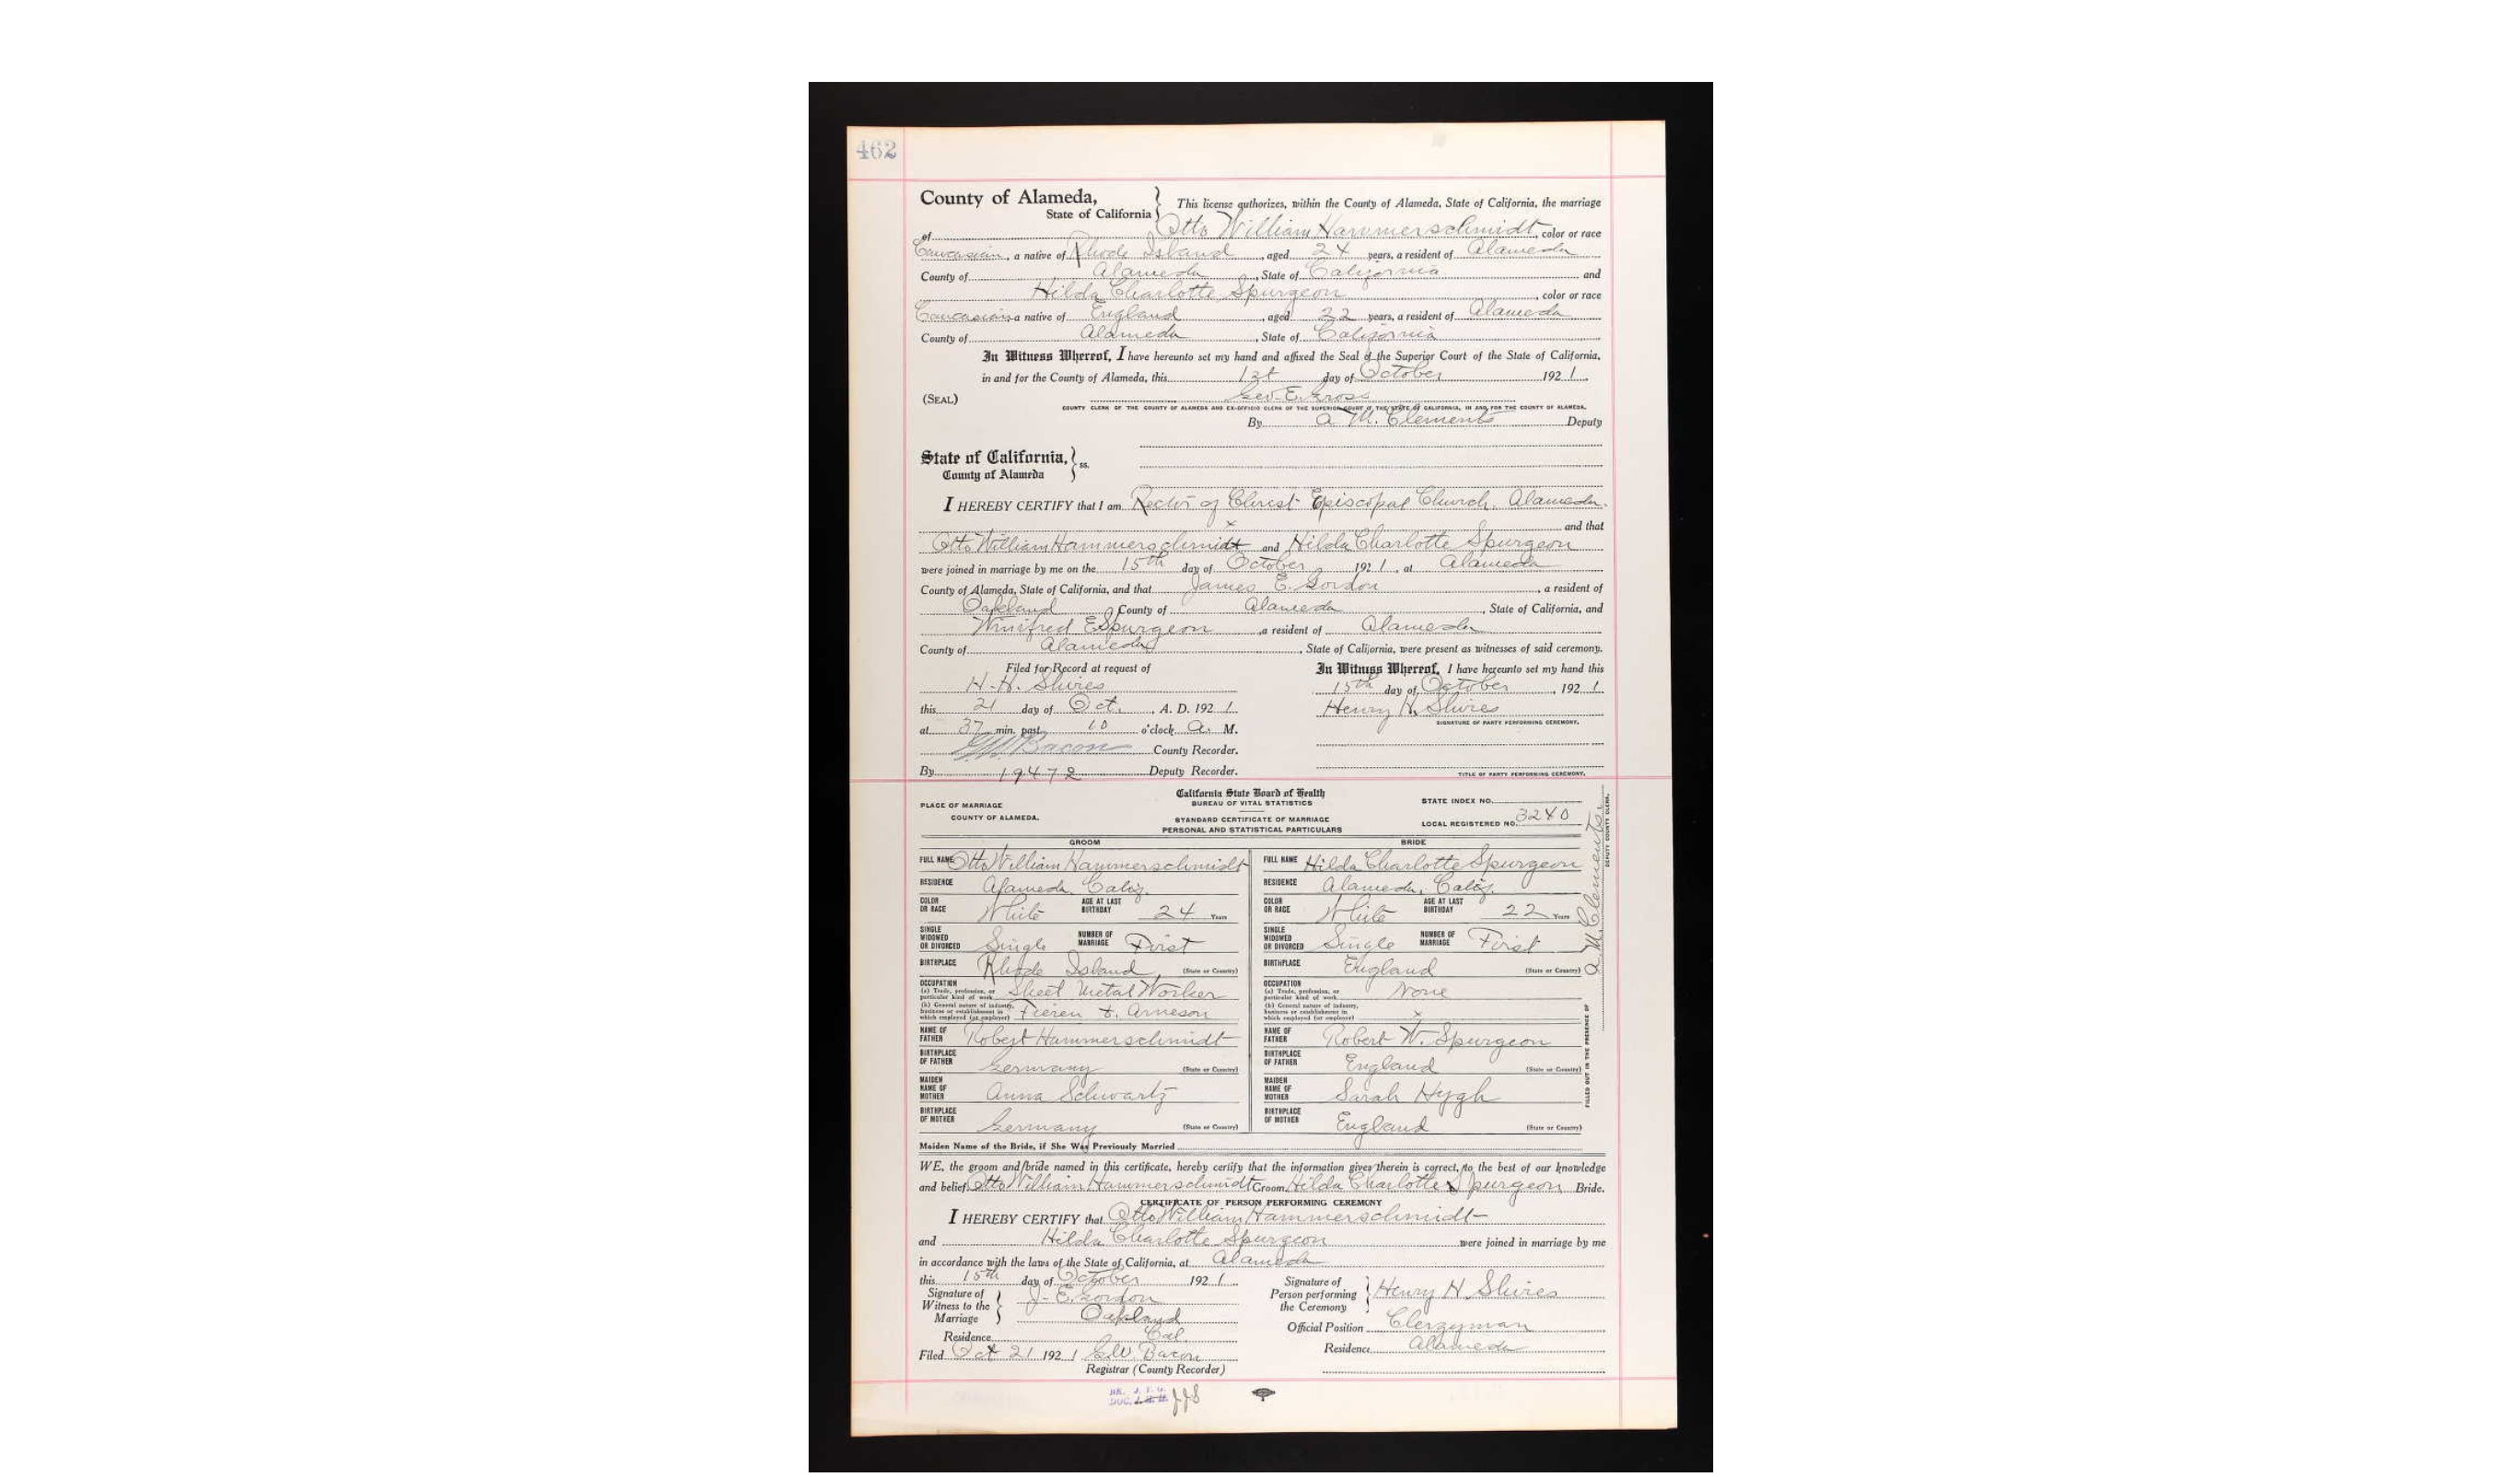 462
County of Alameda, State of California } This license authorizes, within the County of Alameda, State of California, the marriage
of Otto William Hammerschmidt, color or race
Caucasian, a native of Rhode Island, aged 24 years, a resident of Alameda
County of Alameda, State of California and
Hilda Charlotte Spurgeon, color or race
Caucasian a native of England, aged 22 years, a resident of Alameda
County of Alameda, State of California
In Witness Whereof, I have hereunto set my hand and affixed the Seal of the Superior Court of the State of California,
in and for the County of Alameda, this 1st day of October 1921.
(SEAL) Geo. E. Gross
COUNTY CLERK OF THE COUNTY OF ALAMEDA AND EX-OFFICIO CLERK OF THE SUPERIOR COURT OF THE STATE OF CALIFORNIA, IN AND FOR THE COUNTY OF ALAMEDA.
By A. M. Clements Deputy
State of California, County of Alameda } ss.
I HEREBY CERTIFY that I am Rector of Christ Episcopal Church, Alameda.
x and that
Otto William Hammerschmidt and Hilda Charlotte Spurgeon
were joined in marriage by me on the 15th day of October 1921, at Alameda
County of Alameda, State of California, and that James E. Gordon, a resident of
Oakland, County of Alameda, State of California, and
Winifred E Spurgeon, a resident of Alameda
County of Alameda, State of California, were present as witnesses of said ceremony.
Filed for Record at request of
H. H. Shires
this 21 day of Oct., A. D. 1921
at 37 min. past 10 o'clock A. M.
G W Bacon County Recorder.
By 19472 Deputy Recorder.
In Witness Whereof, I have hereunto set my hand this
15th day of October, 1921.
Henry H. Shires
SIGNATURE OF PARTY PERFORMING CEREMONY.
TITLE OF PARTY PERFORMING CEREMONY.
PLACE OF MARRIAGE
COUNTY OF ALAMEDA.
California State Board of Health
BUREAU OF VITAL STATISTICS
STANDARD CERTIFICATE OF MARRIAGE
PERSONAL AND STATISTICAL PARTICULARS
STATE INDEX NO.
LOCAL REGISTERED NO. 3240
GROOM
FULL NAME Otto William Hammerschmidt
RESIDENCE Alameda, Calif.
COLOR OR RACE White AGE AT LAST BIRTHDAY 24 Years
SINGLE WIDOWED OR DIVORCED Single NUMBER OF MARRIAGE First
BIRTHPLACE Rhode Island (State or Country)
OCCUPATION
(a) Trade, profession, or particular kind of work Sheet Metal Worker
(b) General nature of industry, business or establishment in which employed (or employer) & Arneson
NAME OF FATHER Robert Hammerschmidt
BIRTHPLACE OF FATHER Germany (State or Country)
MAIDEN NAME OF MOTHER Anna Schwartz
BIRTHPLACE OF MOTHER Germany (State or Country)
BRIDE
FULL NAME Hilda Charlotte Spurgeon
RESIDENCE Alameda, Calif.
COLOR OR RACE White AGE AT LAST BIRTHDAY 22 Years
SINGLE WIDOWED OR DIVORCED Single NUMBER OF MARRIAGE First
BIRTHPLACE England (State or Country)
OCCUPATION
(a) Trade, profession, or particular kind of work None
(b) General nature of industry, business or establishment in which employed (or employer) x
NAME OF FATHER Robert W. Spurgeon
BIRTHPLACE OF FATHER England (State or Country)
MAIDEN NAME OF MOTHER Sarah Hygh
BIRTHPLACE OF MOTHER England (State or Country)
FILLED OUT IN THE PRESENCE OF A. M. Clements, DEPUTY COUNTY CLERK.
Maiden Name of the Bride, if She Was Previously Married
WE, the groom and bride named in this certificate, hereby certify that the information given therein is correct, to the best of our knowledge
and belief. Otto William Hammerschmidt Groom. Hilda Charlotte Spurgeon Bride.
CERTIFICATE OF PERSON PERFORMING CEREMONY
I HEREBY CERTIFY that Otto William Hammerschmidt
and Hilda Charlotte Spurgeon were joined in marriage by me
in accordance with the laws of the State of California, at Alameda
this 15th day of October 1921.
Signature of Witness to the Marriage } J. E. Gordon
Oakland
Residence Cal.
Filed Oct 21 1921 G W Bacon
Registrar (County Recorder)
Signature of Person performing the Ceremony } Henry H Shires
Official Position Clergyman
Residence Alameda